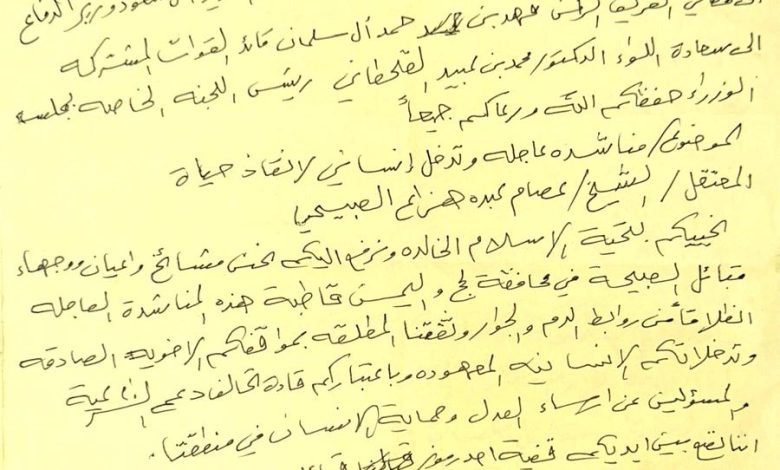 الفريق الركن فهد بن حمد آل سلمان قائد القوات المشتركه
الى سعادة اللواء الدكتور/ محمد بن عبيد القحطاني رئيس اللجنه الخاصه بمجلس
الوزراء حفظكم الله ورعاكم جميعاً
الموضوع/ مناشده عاجله وتدخل إنساني لانقاذ حياة
المعتقل/ الشيخ/ عصام عبده هزاع الصبيحي
نحييكم بتحية الاسلام الخالده ونرفع اليكم نحن مشائخ واعيان ووجهاء
قبائل الصبيحة في محافظة لحج واليمن قاطبة هذه المناشدة العاجله
انطلاقاً من روابط الدم والجوار وثقتنا المطلقه بمواقفكم الاخويه الصادقه
وتدخلاتكم الإنسانيه المعهوده وباعتباركم قادة التحالف دعم الشرعية
والمسؤلين عن ارساء العدل وحماية الإنسان في منطقتنا.
اننا نضع بين ايديكم قضية احد رموز